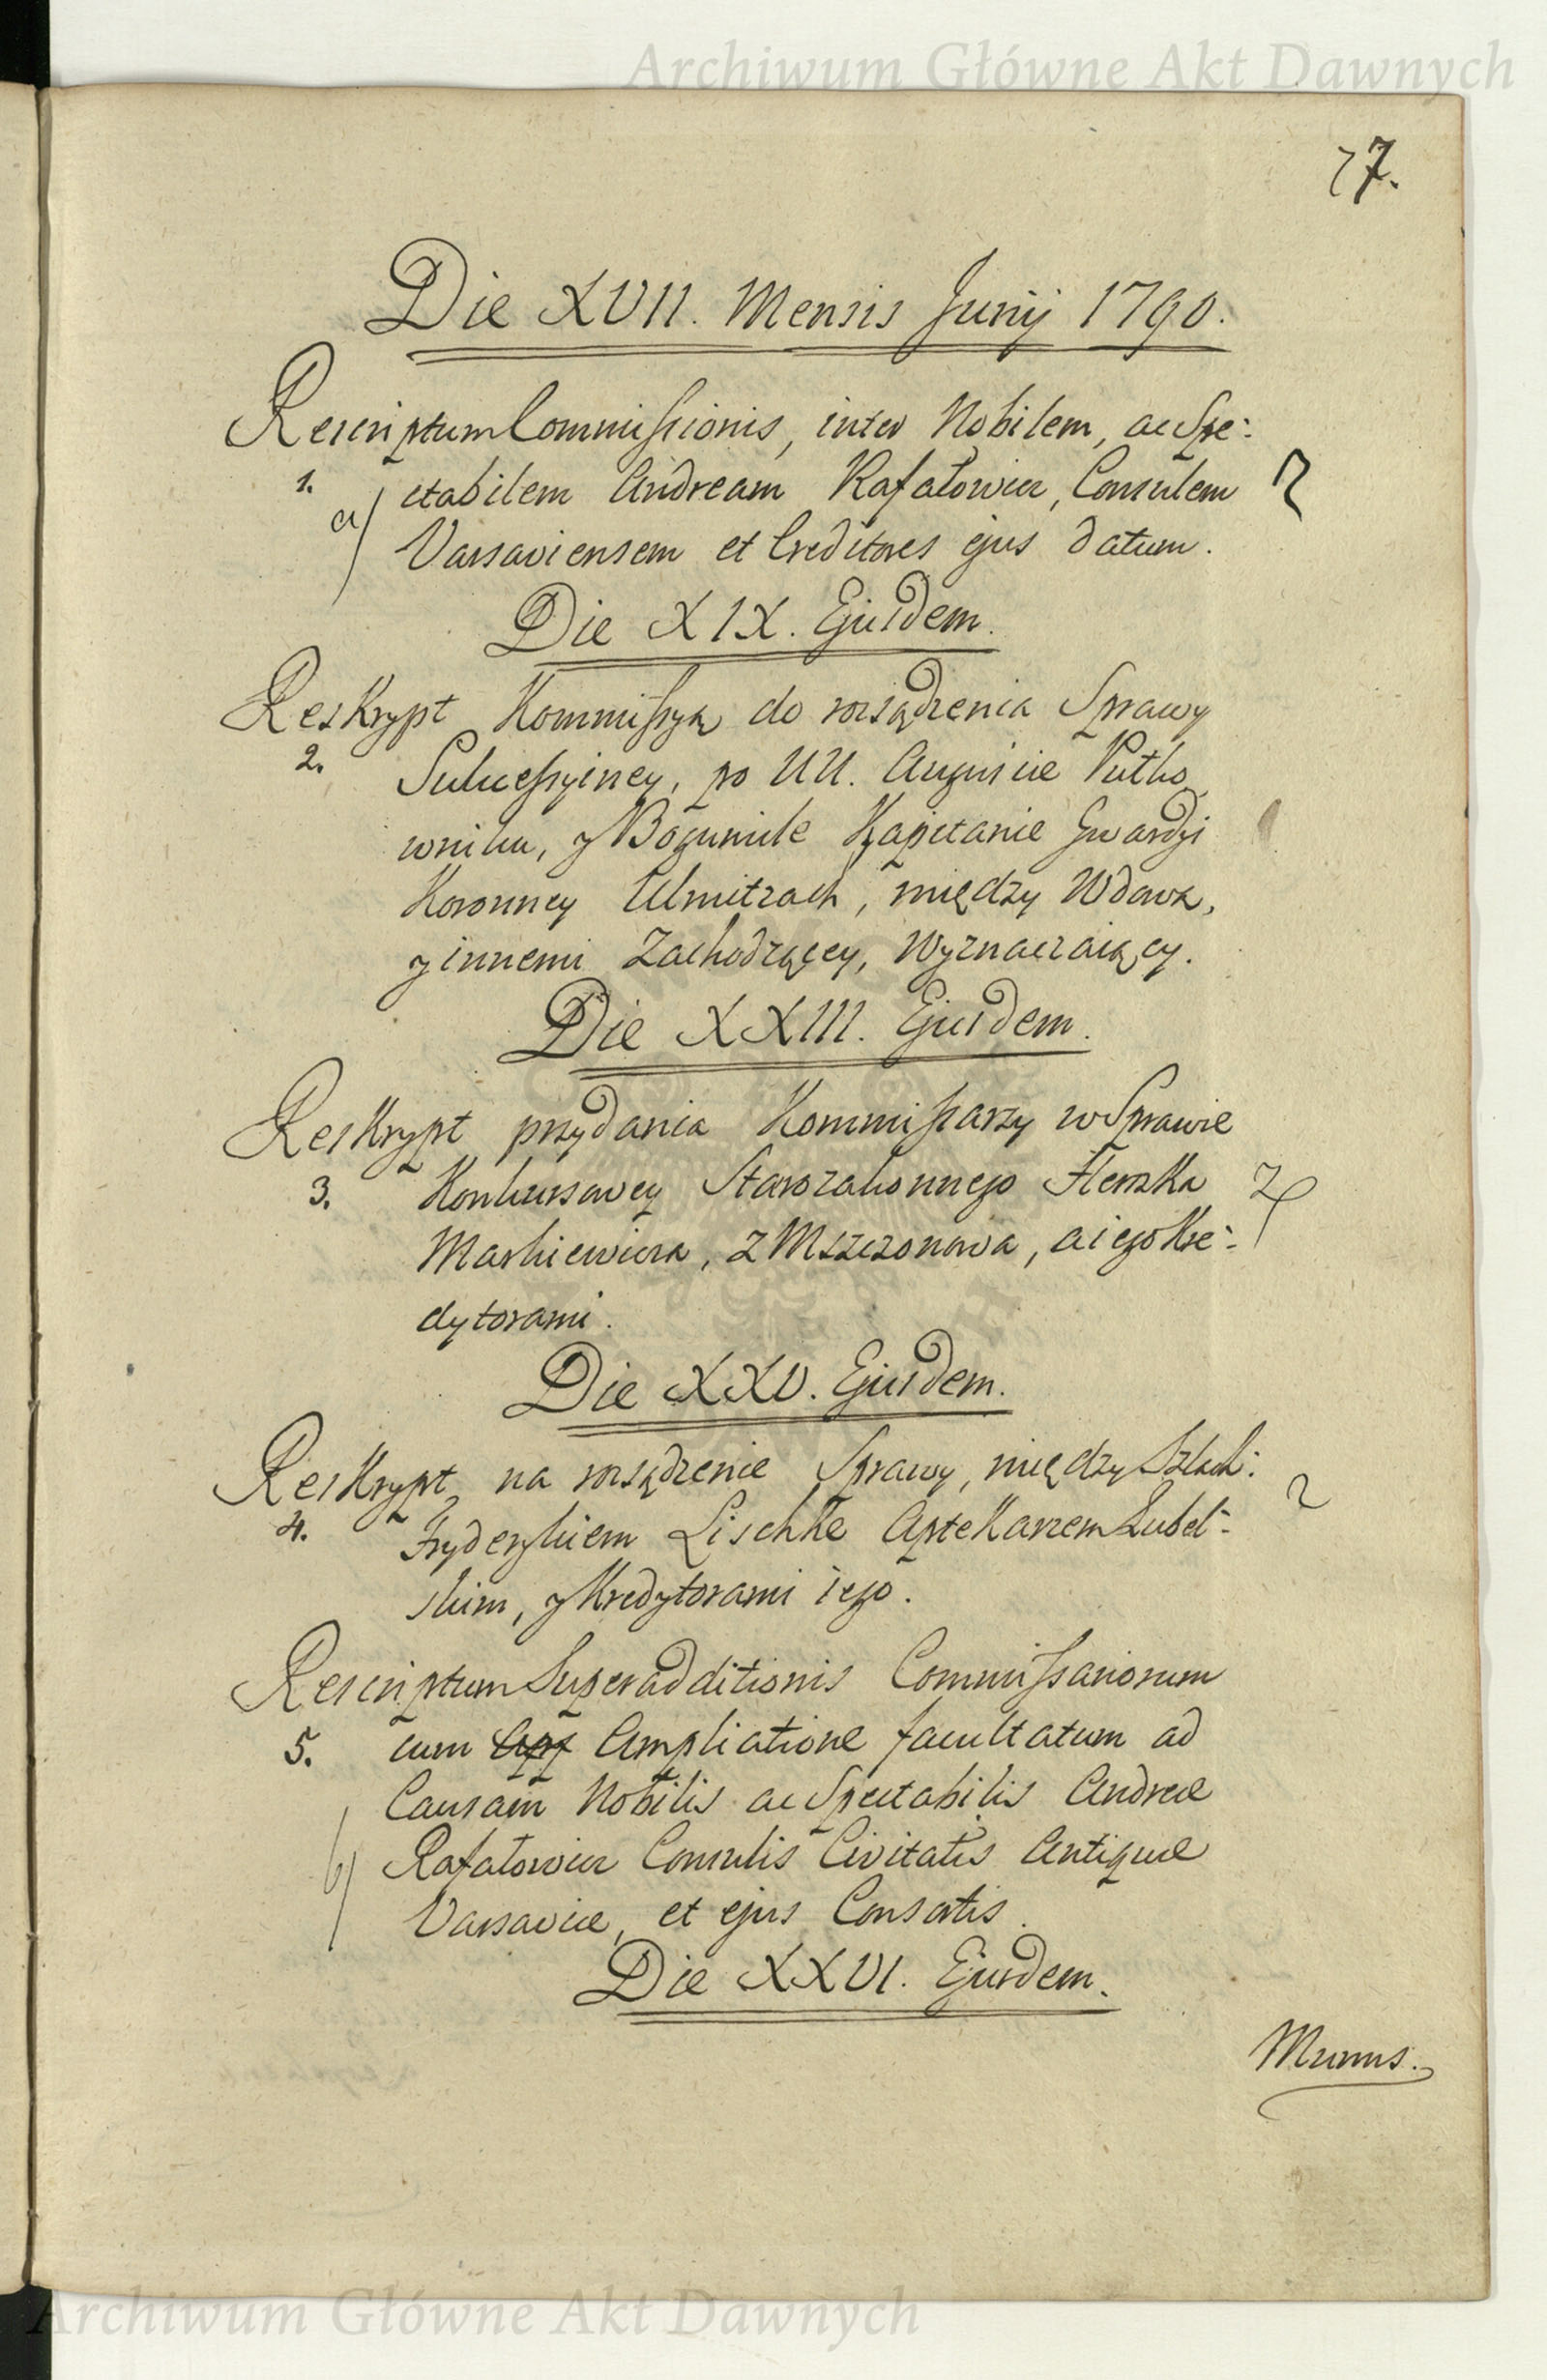 Archiwum Główne Akt Dawnych
77.
Die XVII. Mensis Junij 1790.
Rescriptum Commissionis, inter Nobilem, ac Spe-
1. ctabilem Andream Rafałowicz, Consulem
a) Varsaviensem et Creditores ejus datum.
Die XIX. Ejusdem.
Reskrypt Kommissyą do rozsądzenia Sprawy
2. Sukcessyiney, po UU. Auguście Pułko
wniku, y Bogumile Kapitanie Gwardyi
Koronney Ulmitzach, między Wdową,
y innemi zachodzącey, Wyznaczaiący.
Die XXIII. Ejusdem.
Reskrypt przydania Kommissarzy w Sprawie
3. Konkursowey Starozakonnego Herszka
Markiewicza, z Mszczonowa, a iego Kre-
dytorami.
Die XXV. Ejusdem.
Reskrypt na rozsądzenie Sprawy, między Szlach:
4. Fryderykiem Lischke Aptekarzem Lubel-
skim, y Kredytorami iego.
Rescriptum Superadditionis Commissariorum
5. cum Ampliatione facultatum ad
Causam Nobilis ac Spectabilis Andreæ
b) Rafałowicz Consulis Civitatis Antiquæ
Varsaviæ, et ejus Consortis.
Die XXVI. Ejusdem.
Munus.
Archiwum Główne Akt Dawnych